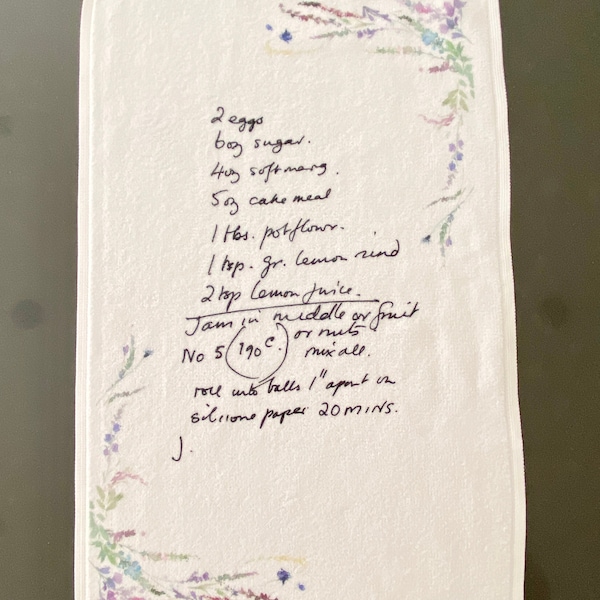 2 eggs
6oz sugar.
4oz soft marg.
5oz cake meal
1 tbs. pot flour.
1 tsp. gr. lemon rind
2 tsp lemon juice.
Jam in middle or fruit
or nuts
No 5 190°C. mix all.
roll into balls 1" apart on
silicone paper 20 MINS.
J.